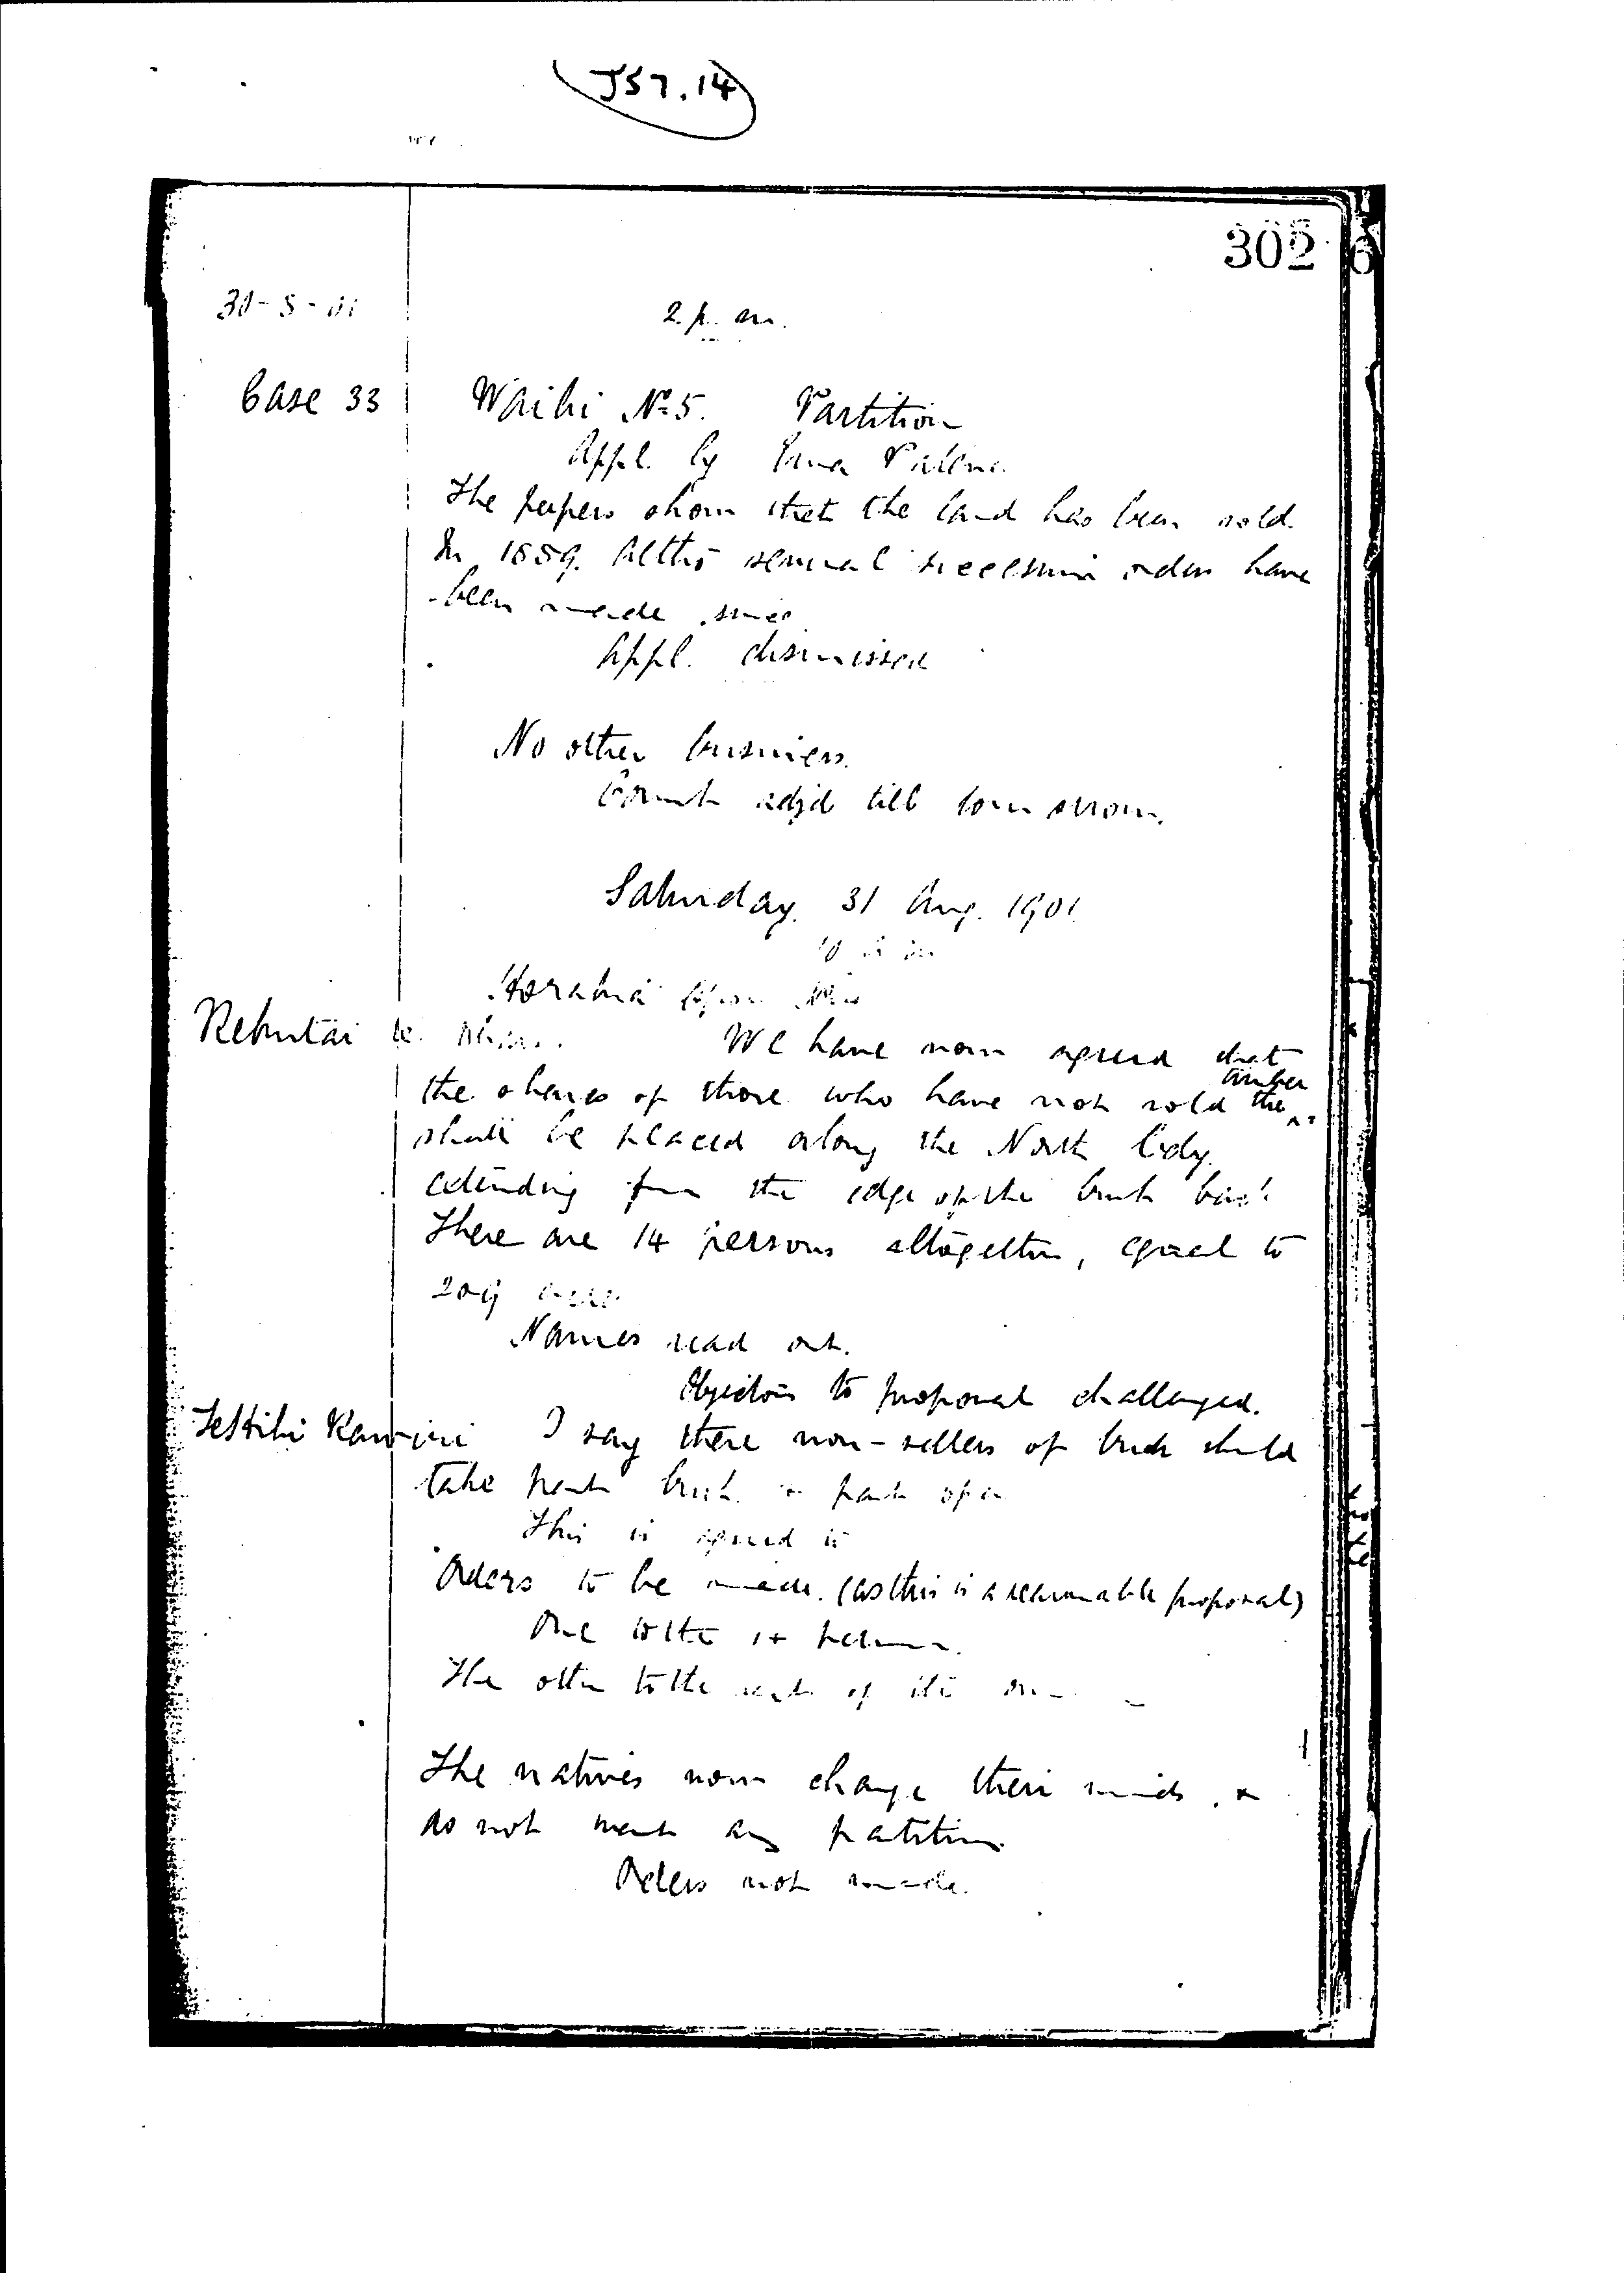 J57.14
302
30-8-01
2. p. m.
Case 33 Waihi No 5. Partition
Appl. by
The papers show that the land has been sold
In 1889. Altho several succession orders have
been made since
Appl. dismissed
No other business.
Court adjd till tomorrow.
Saturday. 31 Aug. 1901.
10 a m
Rehutai We have now agreed that
the shares of those who have not sold the timber
shall be placed along the North Bdy.
extending from the edge of the bush back
There are 14 persons altogether, equal to
209 acres
Names read out.
Objectors to proposal challenged.
Te Hihi Rawiri I say these non-sellers of bush should
take part bush & part open
This is agreed to
Orders to be made. (as this is a reasonable proposal)
One to the 14 persons.
The other to the rest of the
The natives now change their minds, &
do not want any partition
Orders not made.